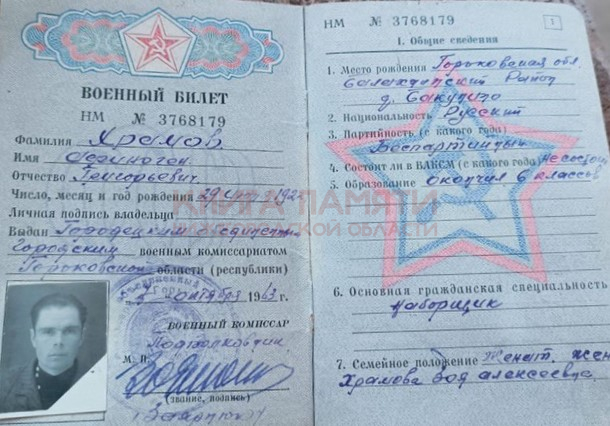 ВОЕННЫЙ БИЛЕТ
НМ № 3768179
Фамилия Храмов
Имя
Отчество
Число, месяц и год рождения 29
Личная подпись владельца
Выдан Городецким
Городским военным комиссариатом
Горьковской области (республики)
октября 1963 г.
ВОЕННЫЙ КОМИССАР
Подполковник
М. П.
(звание, подпись)
НМ № 3768179
1
I. Общие сведения
1. Место рождения Горьковская обл.
Балахнинский район
д.
2. Национальность Русский
3. Партийность (с какого года)
Беспартийный
4. Состоит ли в ВЛКСМ (с какого года)
5. Образование окончил 6 классов
6. Основная гражданская специальность
наборщик
7. Семейное положение Женат. жена
Храмова Алексеевна
КНИГА ПАМЯТИ
ОБЛАСТИ